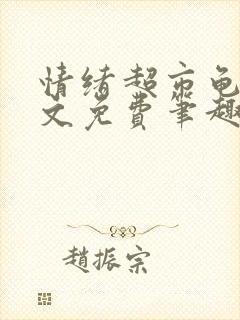 情绪超市龟
文免费笔趣
趙振宗